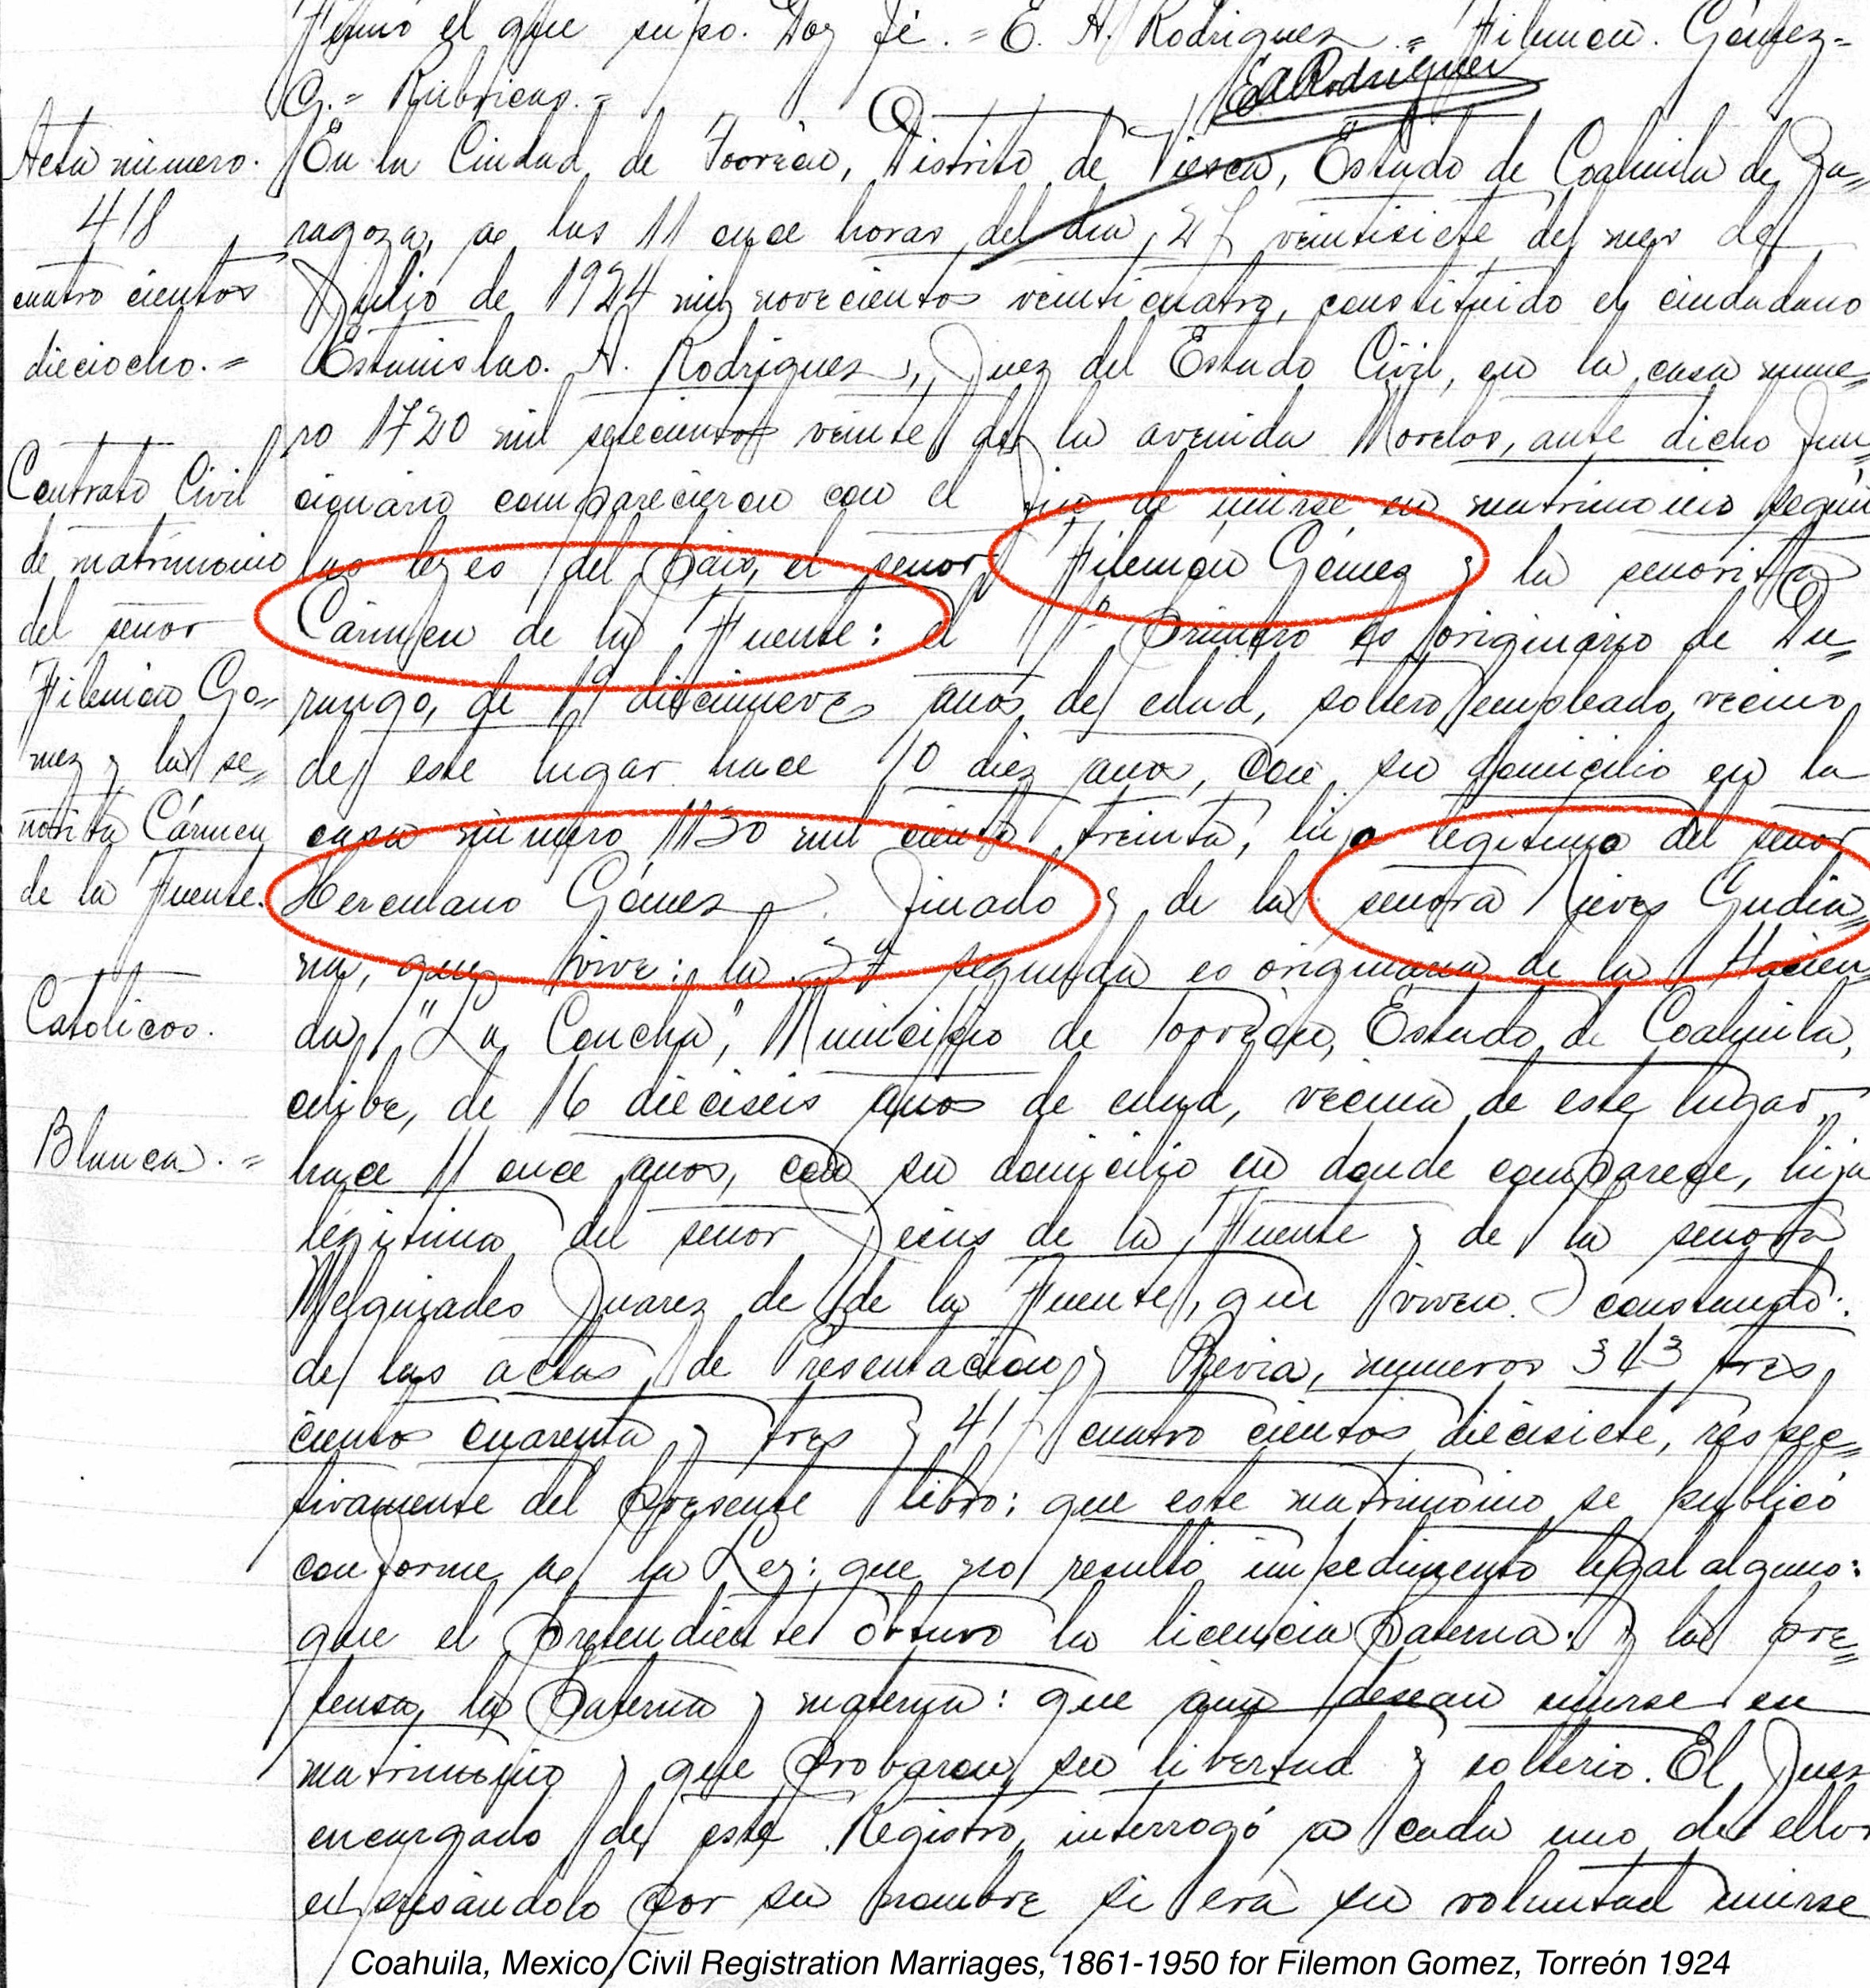 firmó el que supo. Doy fé. = E. A. Rodriguez. = Filemón. Gómez=
G. = Rúbricas. =
EARodriguez
Acta número.
418
cuatro cientos
dieciocho. =
Contrato Civil
de matrimonio
del señor
Filemón Go=
mez y la se=
ñorita Cármen
de la Fuente.
Católicos.
Blanca. =
En la Ciudad de Torreón, Distrito de Viesca, Estado de Coahuila de Za=
ragoza, a las 11 once horas del dia 27 veintisiete del mes de
Julio de 1924 mil novecientos veinticuatro, constituido el ciudadano
Estanislao. A. Rodriguez, Juez del Estado Civil, en la casa núme=
ro 1720 mil setecientos veinte de la avenida Morelos, ante dicho fun=
cionario comparecieron con el fin de unirse en matrimonio según
las leyes del Pais, el señor Filemón Gómez y la señorita
Cármen de la Fuente: el 1º Primero es originario de Du=
rango, de 19 diecinueve años de edad, soltero, empleado, vecino
de este lugar hace 10 diez años, con su domicilio en la
casa número 1130 mil ciento treinta, hijo legitimo del señor
Herculano Gómez, finado y de la señora Nieves Gudia=
na, que vive: la 2ª segunda es originaria de la Hacien=
da, "La Concha", Municipio de Torreón, Estado de Coahuila,
célibe, de 16 dieciseis años de edad, vecina de este lugar,
hace 11 once años, con su domicilio en donde comparece, hija
legitima del señor Jesús de la Fuente y de la señora
Melquiades Juarez de de la Fuente, que viven. constando:
de las actas de Presentación y Previa, números 343 tres,
cientos cuarenta y tres y 417 cuatro cientos diecisiete, respec=
tivamente del presente libro: que este matrimonio se publicó
conforme a la Ley: que no resultó impedimento legal alguno:
que el pretendiente obtuvo la licencia paterna: y la pre=
tensa, la paterna y materna: que aún desean unirse en
matrimonio y que probaron su libertad y solterio. El Juez
encargado de este Registro, interrogó a cada uno de ellos
expresándolo por su nombre si era su voluntad unirse
Coahuila, Mexico, Civil Registration Marriages, 1861-1950 for Filemon Gomez, Torreón 1924